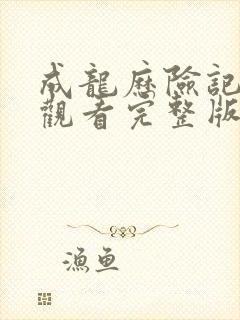 成龍歷險記
觀看完整版
漁魚